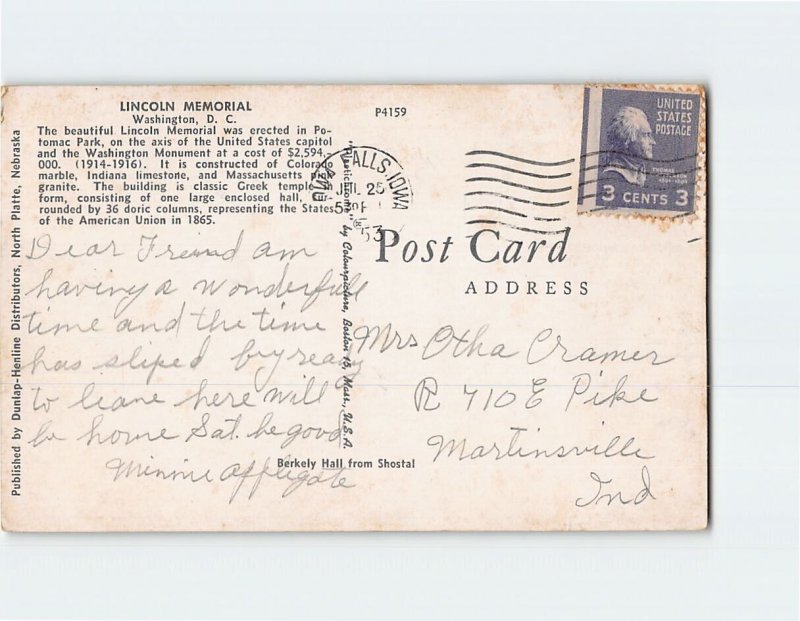 LINCOLN MEMORIAL
Washington, D. C.
The beautiful Lincoln Memorial was erected in Po-
tomac Park, on the axis of the United States capitol
and the Washington Monument at a cost of $2,594,-
000. (1914-1916). It is constructed of Colorado
marble, Indiana limestone, and Massachusetts
granite. The building is classic Greek temple
form, consisting of one large enclosed hall, sur-
rounded by 36 doric columns, representing the States
of the American Union in 1865.
Dear Freind am
having a wonderfull
time and the time
has sliped by ready
to leave here will
be home Sat. be good
Minnie Applegate
Published by Dunlap-Henline Distributors, North Platte, Nebraska
"Plastichrome" ® by Colourpicture, Boston 15, Mass., U.S.A.
P4159
FALLS, IOWA
JUL 25
53
UNITED
STATES
POSTAGE
THOMAS
3 CENTS 3
Post Card
ADDRESS
Mrs Otha Cramer
R 710 E Pike
Martinsville
Ind
Berkely Hall from Shostal